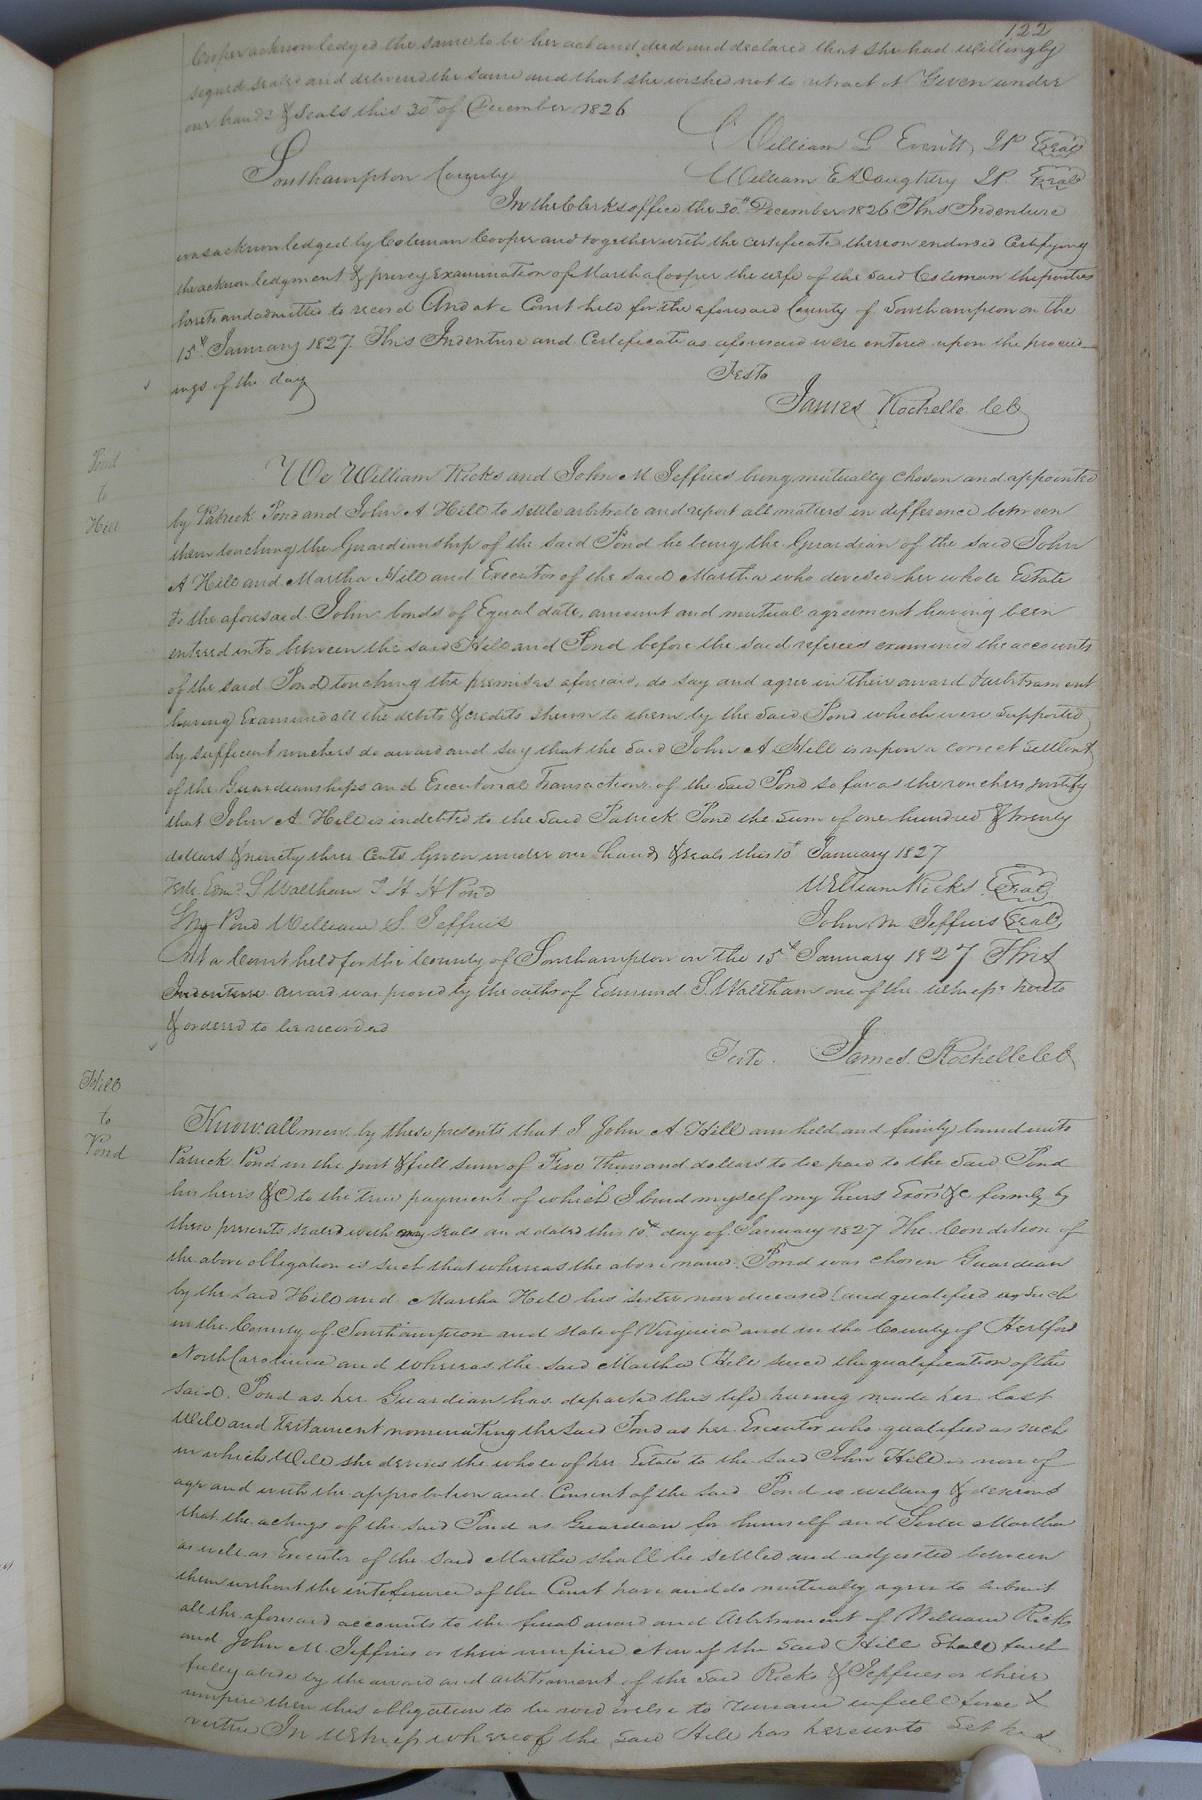 122
Cooper acknowledged the same to be her act and deed and declared that she had willingly
signed sealed and delivered the same and that she wished not to retract it Given under
our hands & Seals this 30th of December 1826
William L Everitt, JP Seal
Southampton County William E Daughtry JP. Seal
In the Clerks office the 30th December 1826 This Indenture
was acknowledged by Coleman Cooper and together with the certificate thereon endorsed Certifying
the acknowledgment & privey Examination of Martha Cooper the wife of the said Coleman the parties
hereto and admitted to record And at a Court held for the aforesaid County of Southampton on the
15th January 1827. This Indenture and Certificate as aforesaid were entered upon the proceed-
ings of the day
Teste
James Rochelle ClC
Pond
to
Hill
We William Ricks and John M Jeffries being mutually chosen and appointed
by Patrick Pond and John A Hill to settle arbitrate and report all matters in difference between
them touching the Guardianship of the said Pond he being the Guardian of the said John
A Hill and Martha Hill and Executor of the said Martha who devised her whole Estate
to the aforesaid John bonds of Equal date, amount and mutual agreement having been
entered into between the said Hill and Pond before the said referees examined the accounts
of the said Pond touching the premises aforesaid, do say and agree in their award & arbitrament
having Examined all the debits & credits shewn to them by the said Pond which were supported
by sufficient vouchers do award and say that the said John A Hill is upon a correct settlemt
of the Guardianships and Executorial Transactions of the said Pond so far as the vouchers justify
that John A. Hill is indebted to the said Patrick Pond the sum of one hundred & twenty
dollars & ninety three Cents Given under our hands & seals this 10th January 1827
Teste Edmd. S Waltham J H H Pond William Ricks Seal
Pond William S. Jeffries John M Jeffries Seal
At a Court held for the County of Southampton on the 15th January 1827 This
Indenture award was proved by the oaths of Edmund S. Waltham one of the witness hereto
& ordered to be recorded
Teste. James Rochelle ClC
Hill
to
Pond
Know all men by these presents that I John A Hill am held and firmly bound unto
Patrick Pond in the just & full sum of Five Thousand dollars to be paid to the said Pond
his heirs &C to the true payment of which I bind myself my heirs Exors &c firmly by
these presents sealed with my seals and dated this 10th day of January 1827 The Condition of
the above obligation is such that whereas the above named Pond was chosen Guardian
by the said Hill and Martha Hill his sister now deceased and qualified as such
in the County of Southampton and State of Virginia and in the County of Hertford
North Carolina and whereas the said Martha Hill since the qualification of the
said Pond as her Guardian has departed this life having made her last
Will and testament nominating the said Pond as her Executor who qualified as such
in which Will she devises the whole of her Estate to the said John Hill is now of
age and with the approbation and Consent of the said Pond is willing & desirous
that the actings of the said Pond as Guardian for himself and Sister Martha
as well as Executor of the said Martha shall be settled and adjusted between
them without the interference of the Court have and do mutually agree to submit
all the aforesaid accounts to the final award and Arbitrament of William Ricks
and John M Jeffries or their umpire Now if the said Hill shall faith
fully abide by the award and arbitrament of the said Ricks & Jeffries or their
umpire then this obligation to be void or else to remain in full force &
virtue In Witness whereof the said Hill has hereunto set his